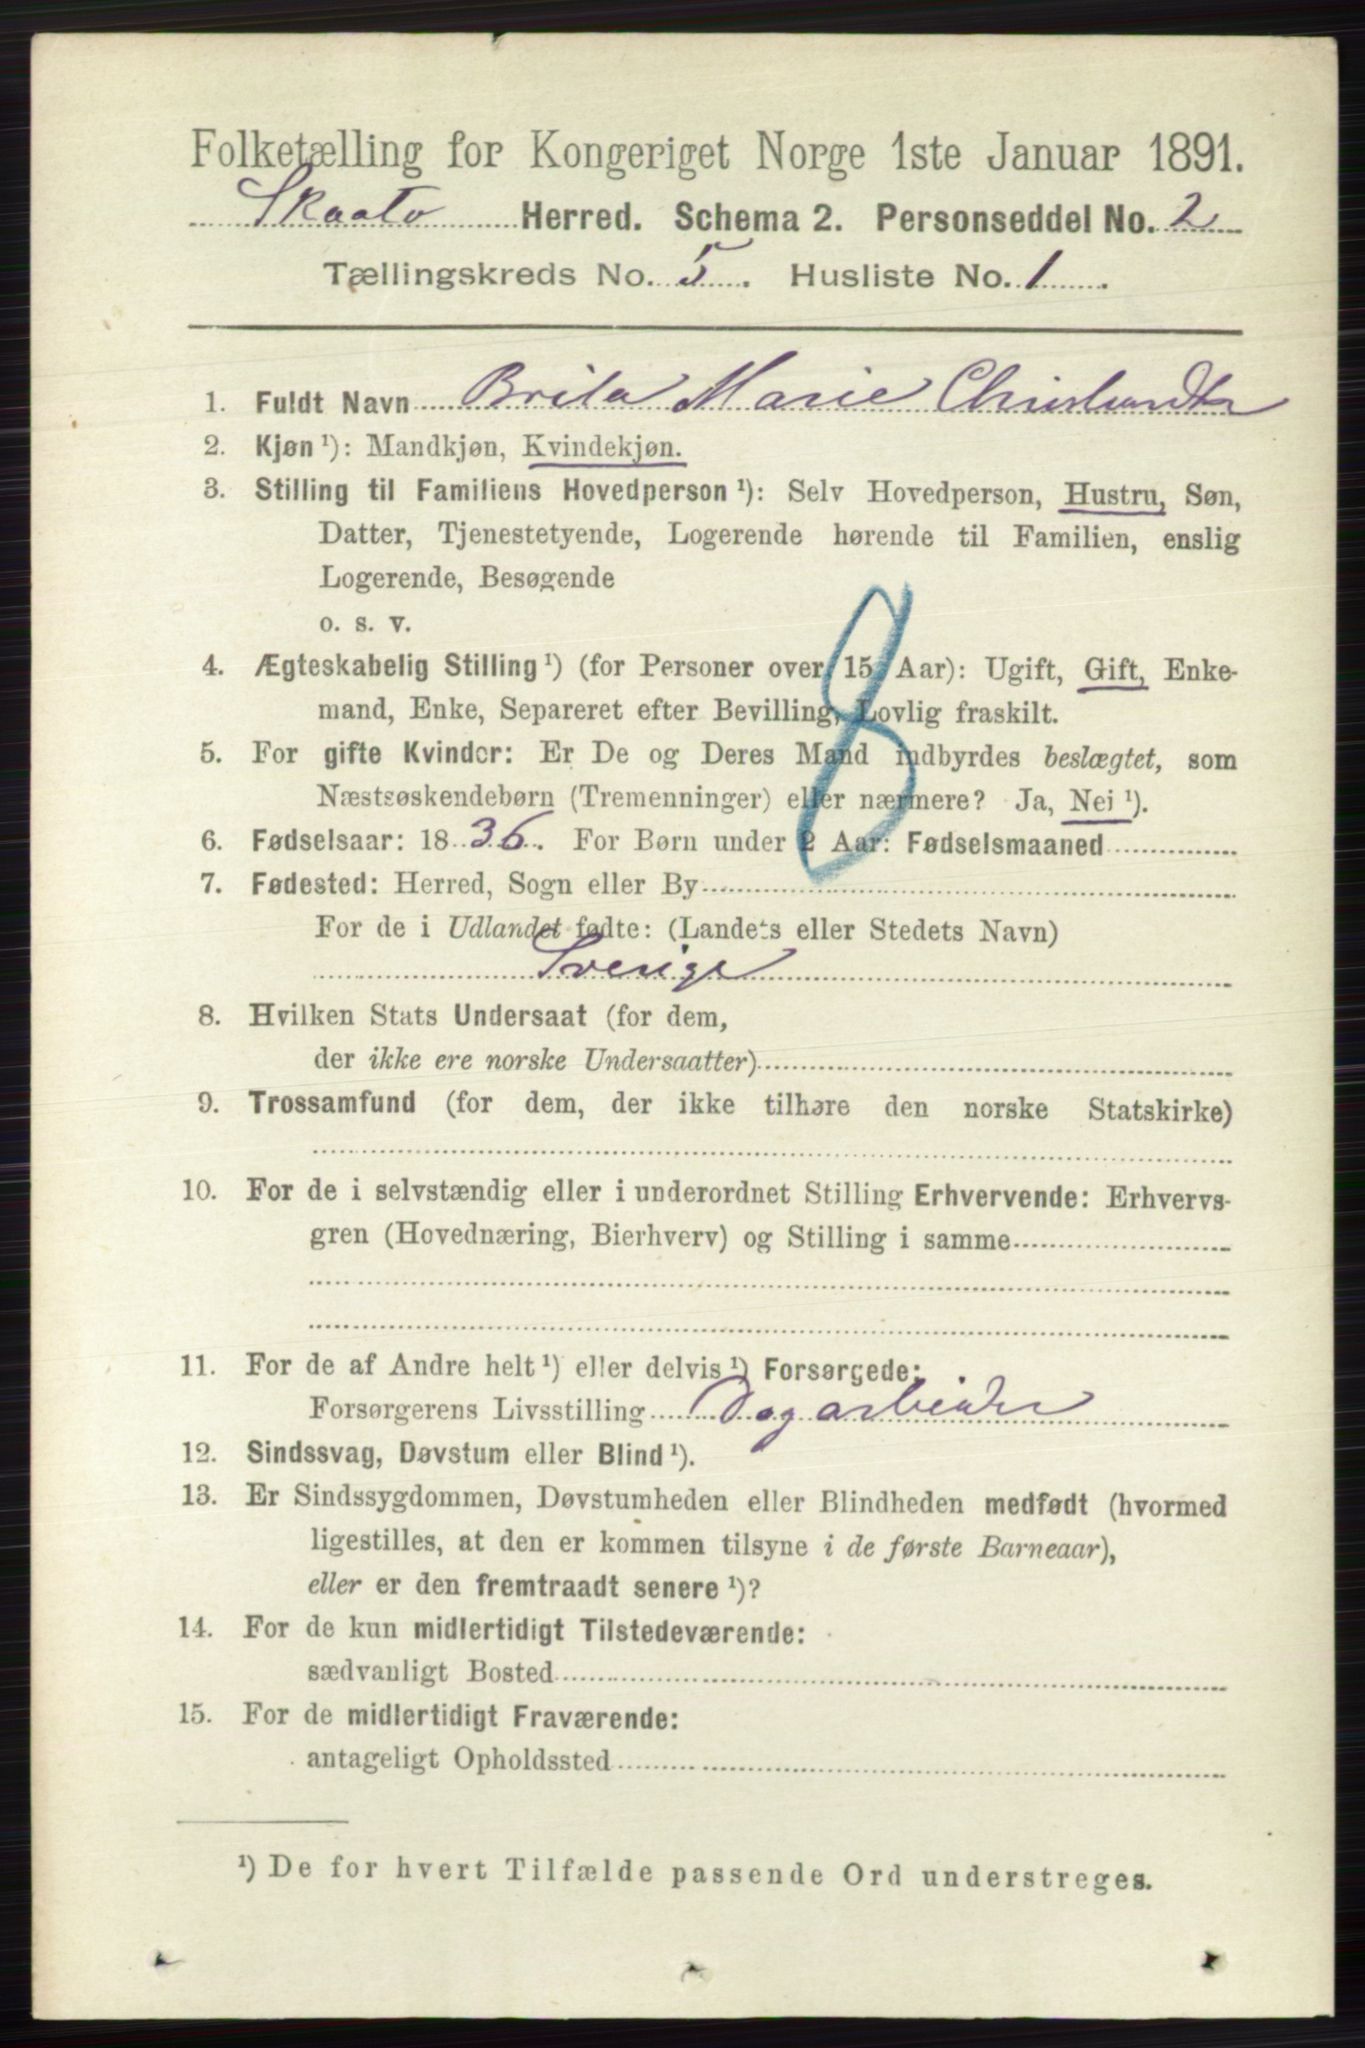 Folketælling for Kongeriget Norge 1ste Januar 1891.
Skaatø Herred. Schema 2. Personseddel No. 2
Tællingskreds No. 5. Husliste No. 1.
1. Fuldt Navn Brita Marie
2. Kjøn ¹): Mandkjøn, Kvindekjøn.
3. Stilling til Familiens Hovedperson ¹): Selv Hovedperson, Hustru, Søn,
Datter, Tjenestetyende, Logerende hørende til Familien, enslig
Logerende, Besøgende
o. s. v.
4. Ægteskabelig Stilling ¹) (for Personer over 15 Aar): Ugift, Gift, Enke-
mand, Enke, Separeret efter Bevilling, Lovlig fraskilt.
5. For gifte Kvinder: Er De og Deres Mand indbyrdes beslægtet, som
Næstsøskendebørn (Tremenninger) eller nærmere? Ja, Nei ¹).
6. Fødselsaar: 1836. For Børn under 2 Aar: Fødselsmaaned
7. Fødested: Herred, Sogn eller By
For de i Udlandet fødte: (Landets eller Stedets Navn)
Sverige
8
8. Hvilken Stats Undersaat (for dem,
der ikke ere norske Undersaatter)
9. Trossamfund (for dem, der ikke tilhøre den norske Statskirke)
10. For de i selvstændig eller i underordnet Stilling Erhvervende: Erhvervs-
gren (Hovednæring, Bierhverv) og Stilling i samme
11. For de af Andre helt ¹) eller delvis ¹) Forsørgede:
Forsørgerens Livsstilling Dagarbeider
12. Sindssvag, Døvstum eller Blind ¹).
13. Er Sindssygdommen, Døvstumheden eller Blindheden medfødt (hvormed
ligestilles, at den er kommen tilsyne i de første Barneaar),
eller er den fremtraadt senere ¹)?
14. For de kun midlertidigt Tilstedeværende:
sædvanligt Bosted
15. For de midlertidigt Fraværende:
antageligt Opholdssted
¹) De for hvert Tilfælde passende Ord understreges.